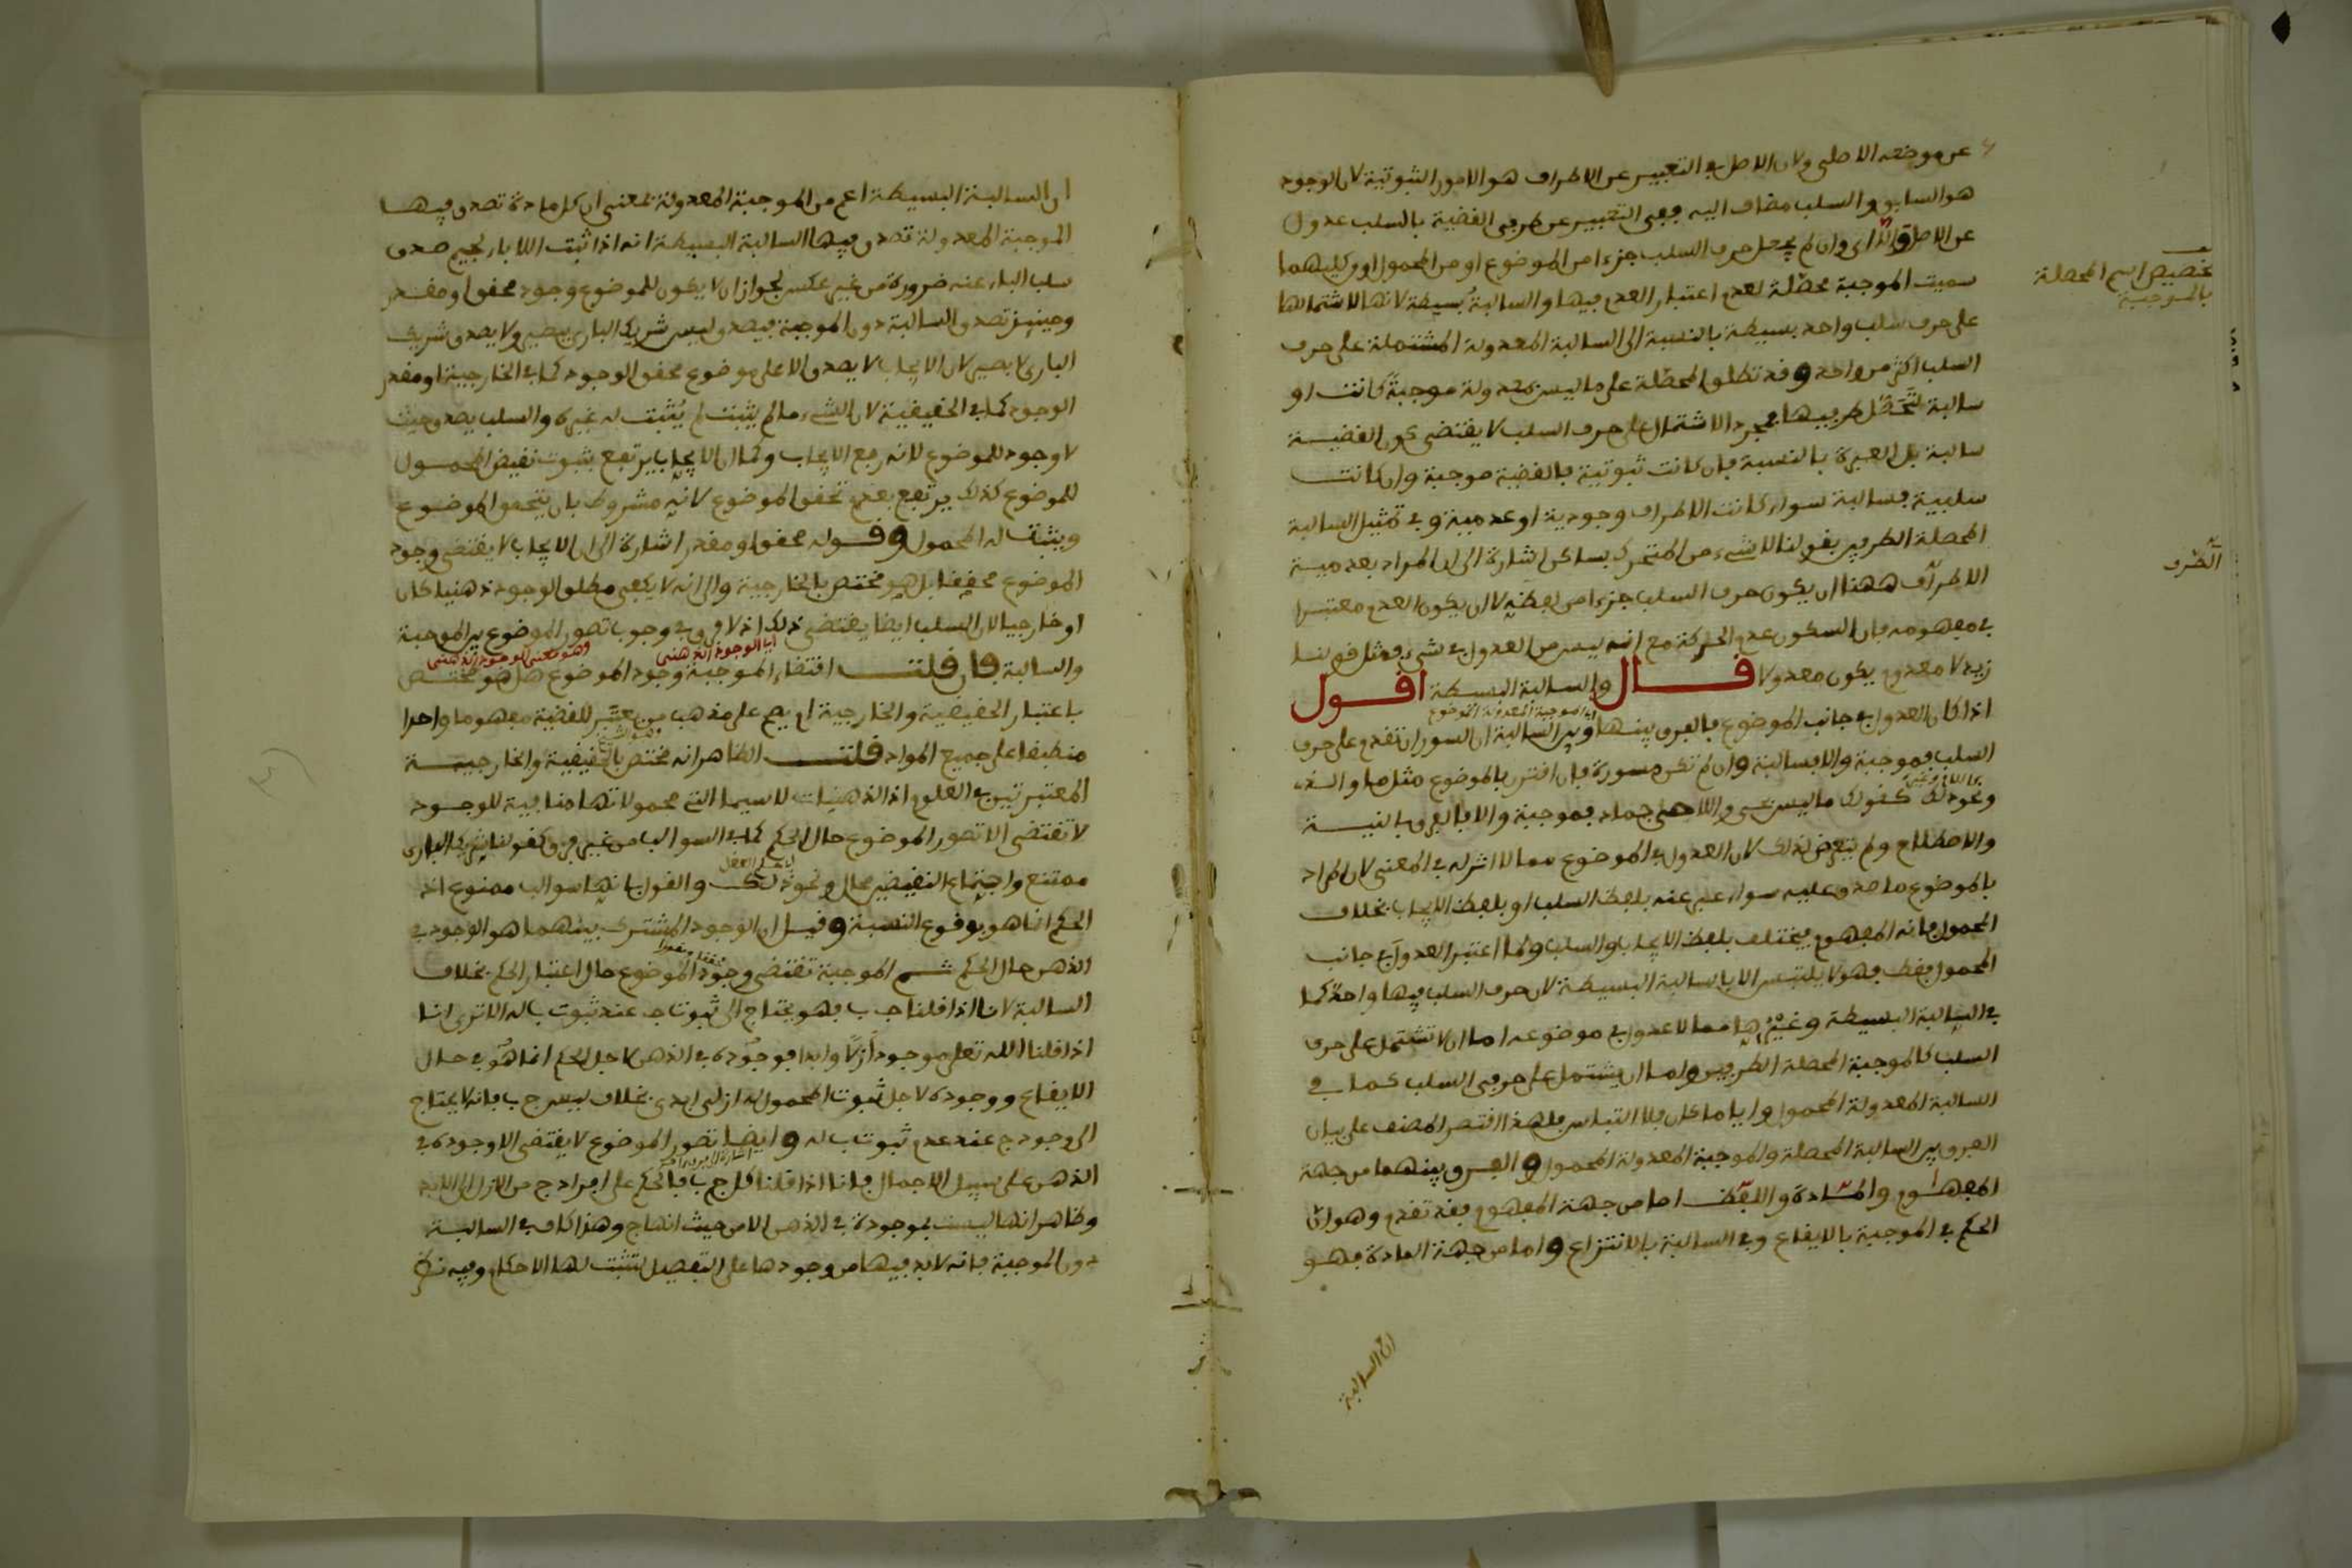 عن موضعه الاصلي ولان الاصل في التعبير عن الاطراف هو الامور الثبوتية لان الوجود
هو السابق والسلب مضاف اليه ففي التعبير عن طرفي القضية بالسلب عدول
عن الاصل والا اي وان لم يجعل حرف السلب جزءا من الموضوع او من المحمول او من كليهما
سميت الموجبة محصّلة لعدم اعتبار العدم فيها والسالبة بسيطة لانها لاشتمالها
على حرف سلب واحد بسيطة بالنسبة الى السالبة المعدولة المشتملة على حرف
السلب اكثر من واحد وقد تطلق المحصّلة على ما ليس معدولة موجبة كانت او
سالبة لتحصّل طرفيها فمجرد الاشتمال على حرف السلب لا يقتضي كون القضيـة
سالبة بل العبرة بالنسبة فان كانت ثبوتية فالقضية موجبة وان كانت
سلبية فسالبة سواء كانت الاطراف وجودية او عدمية وفي تمثيل السالبة
المحصلة الطرفين بقولنا لا شيء من المتحرك بساكن اشارة الى ان المراد بعدمية
الاطراف ههنا ان يكون حرف السلب جزءا من لفظه لا ان يكون العدم معتبرا
في مفهومه فان السكون عدم الحركة مع انه ليس من العدول في شيء فمثل قولنـا
زيد لا معدوم يكون معدولا قـال والسالبة البسيطة اقـول
اي الموجبة المعدولة الموضوع
اذا كان العدول في جانب الموضوع فالفرق بينـها وبين السالبة ان السور ان تقدم على حرف
السلب فموجبة والا فسالبة وان لم تكن مسورة فان اقترن بالموضوع مثل ما والذي
ونحو ذلك كقولك ما ليس بحي واللا حي جماد فموجبة والا فالفرق بالنيـة
والاصطلاح ولم يتعرض لذلك لان العدول في الموضوع مما لا اثر له في المعنى لان المراد
بالموضوع ما صدق عليه سواء عبر عنه بلفظ السلب او بلفظ الايجاب بخلاف
المحمول فانه المفهوم فيختلف بلفظ الايجاب والسلب ولما اعتبر العدول في جانب
المحمول فقط فهو لا يلتبس الا بالسالبة البسيطة لان حرف السلب فيها واحد كما
في السالبة البسيطة وغيرها مما لا عدول في موضوعه اما ان لا تشتمل على حرف
السلب كالموجبة المحصلة الطرفين واما ان يشتمل على حرفي السلب كما في
السالبة المعدولة المحمول وايا ما كان فلا التباس فلهذا اقتصر المصنف على بيان
الفرق بين السالبة المحصلة والموجبة المعدولة المحمول والفـرق بينهما من جهة
المفهـوم والمادة واللفظ اما من جهة المفهوم فقد تقدم وهو ان
الحكم في الموجبة بالايقاع وفي السالبة بالانتزاع واما من جهة المادة فهـو
ان السالبة
تخصيص اسم المحصلة
بالموجبة
الطرف
ان السالبـة البسيطة اعم من الموجبة المعدولة بمعنى ان كل مادة تصدق فيهـا
الموجبة المعدولة تصدق فيها السالبة البسيطة انه اذا ثبت اللا باء لجيم صدق
سلب الباء عنه ضرورة من غير عكس لجواز ان لا يكون للموضوع وجود محقق او مقـدر
وحينئذ تصدق السالبة دون الموجبة فيصدق ليس شريك الباري ببصير ولا يصدق شريك
الباري لا بصير لان الايجاب لا يصدق الا على موضوع محقق الوجود كما في الخارجية او مقدر
الوجود كما في الحقيقية لان الشيء ما لم يثبت لم يُثبت له غيره والسلب يصدق حيث
لا وجود للموضوع لانه رفع الايجاب وكما ان الايجاب يرتفع بثبوت نقيض المحمـول
للموضوع كذلك يرتفع بعدم تحقق الموضوع لانه مشروط بان يتحقق الموضـوع
ويثبت له المحمول وقـوله محقق او مقدر اشارة الى ان الايجاب لا يقتضي وجود
الموضوع محققا بل هو مختص بالخارجية والى انه لا يكفي مطلق الوجود ذهنيا كان
او خارجيا لان السلب ايضا يقتضي ذلك اذ لا فرق في وجوب تصور الموضوع بين الموجبة
اي الوجود الذهني وهو معنى الوجود الذهني
والسالبة فان قلتـ اقتضاء الموجبة وجود الموضوع هل هو مختـص
باعتبار الحقيقية والخارجية ام يعم على مذهب من يعتبر للقضية مفهوما واحدا
منطبقا على جميع المواد قلتـ الظاهر انه مختص بالحقيقية والخارجيـة
المعتبرتين في العلوم اذ الذهنيات لا سيما التي محمولاتها منافية للوجـود
لا تقتضي الا تصور الموضوع حال الحكم كما في السوالب من غير فرق كقولنا شريك الباري
ممتنع واجتماع النقيضين محال ونحو ذلك والقول بانها سوالب ممنوع اذ
الحكم انما هو بوقوع النسبة وقيل ان الوجود المشترك بينهما هو الوجود في
الذهن حال الحكم ثـم الموجبة تقتضي وجود الموضوع حال اعتبار الحكم بخلاف
السالبة لانا اذا قلنا ج ب فهو يحتاج الى ثبوت ج عند ثبوت ب له الا ترى انا
اذا قلنا الله تعلى موجود ازلًا وابدا فوجوده في الذهن لاجل الحكم انما هو في حال
الايقاع ووجوده لاجل ثبوت المحمول له ازلي ابدي بخلاف ليس ج ب فانه لا يحتاج
الى وجود ج عند عدم ثبوت ب له وايضا تصور الموضوع لا يقتضي الا وجوده في
الذهن على سبيل الاجمال فانا اذا قلنا كل ج ب فالحكم على افراد ج من الازل الى الابد
وظاهر انها ليست بموجودة في الذهن الا من حيث انها ج وهذا كاف في السالبـة
دون الموجبة فانه لا بد فيها من وجودها على التفصيل لتثبت لها الاحكام وفيه نظر